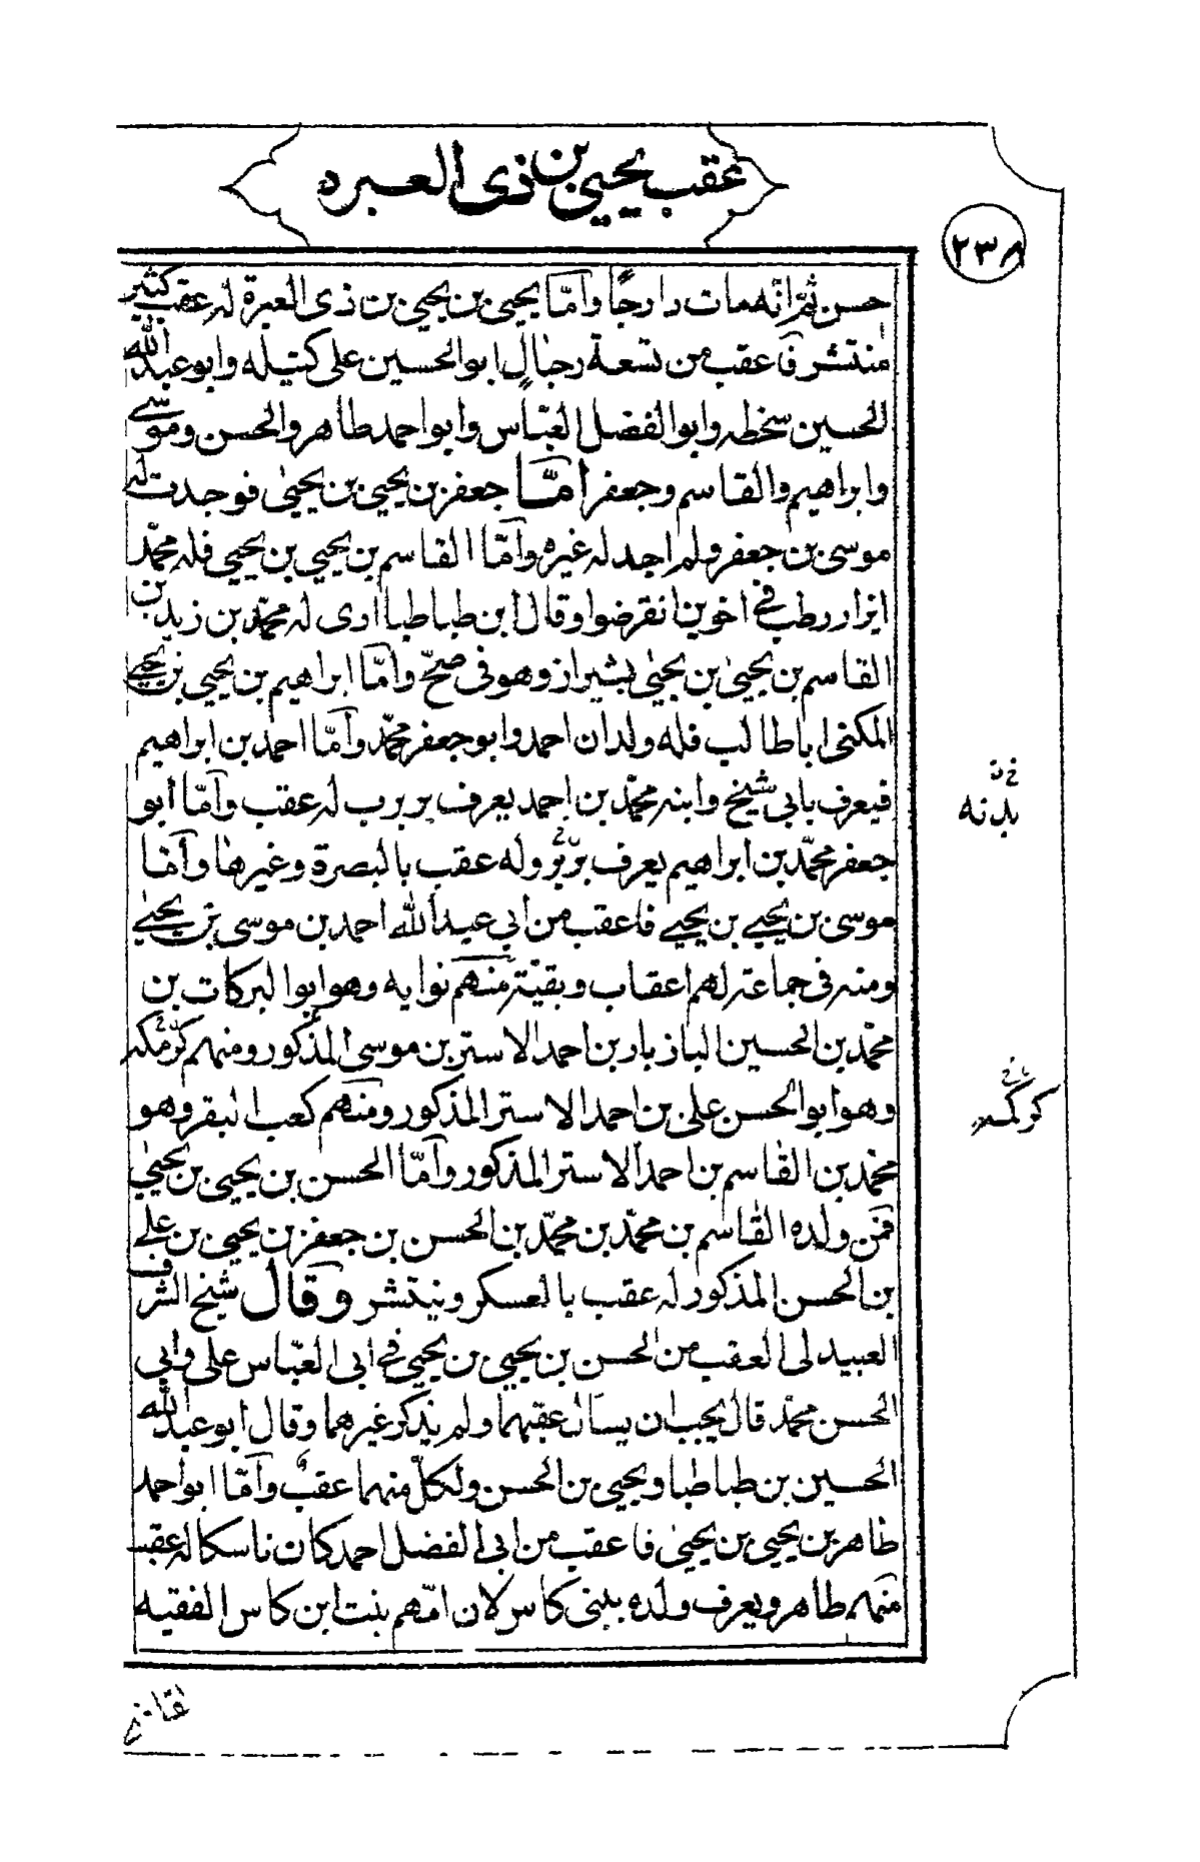 عقب يحيى بن ذى العبره
٢٣٨
حسن ثم انه مات دارجًا وامّا يحيى بن يحيى بن ذى العبرة له عقب كثير
منتشر فاعقب من تسعة رجال ابو الحسين على كتيله وابو عبد الله
الحسين سخطه وابو الفضل العبّاس وابو احمد طاهر والحسن وموسى
وابراهيم والقاسم وجعفر امّا جعفر بن يحيى بن يحيى فوجدت له
موسى بن جعفر ولم اجد له غيره وامّا القاسم بن يحيى بن يحيى فله محمّد
ابزار رطب فى اخوين انقرضوا وقال ابن طباطبا ارى له محمّد بن زيد بن
القاسم بن يحيى بن يحيى بشيراز وهو فى صحّ وامّا ابراهيم بن يحيى بن يحيى
المكنى اباطالب فله ولدان احمد وابو جعفر محمّد وامّا احمد بن ابراهيم
فيعرف بابى شيخ وابنه محمّد بن احمد يعرف بربرب له عقب وامّا ابو
جعفر محمّد بن ابراهيم يعرف وله عقب بالبصرة وغيرها وامّا
موسى بن يحيى بن يحيى فاعقب من ابى عبد الله احمد بن موسى بن يحيى
ومنه فى جماعة لهم اعقاب وبقيّة منهم نوايه وهو ابو البركات بن
محمّد بن الحسين البازيار بن احمد الاستر بن موسى المذكور ومنهم
وهو ابو الحسن على بن احمد الاستر المذكور ومنهم كعب البقر وهو
محمد بن القاسم بن احمد الاستر المذكور وامّا الحسن بن يحيى بن يحيى
فمن ولده القاسم بن محمّد بن محمّد بن الحسن بن جعفر بن يحيى بن على
بن الحسن المذكور له عقب بالعسكر وينتشر وقال شيخ الشرف
العبيدلى العقب من الحسن بن يحيى بن يحيى فى ابى العبّاس على وابى
الحسن محمّد قال يجب ان يسال عقبهما ولم يذكر غيرهما وقال ابو عبد الله
الحسين بن طباطبا ويحيى بن الحسن ولكلّ منهما عقب وامّا ابو احمد
طاهر بن يحيى بن يحيى فاعقب من ابى الفضل احمد كان ناسكا له عقب
منهم طاهر ويعرف ولده ببنى كاس لان امّهم بنت ابن كاس الفقيه
بدنه